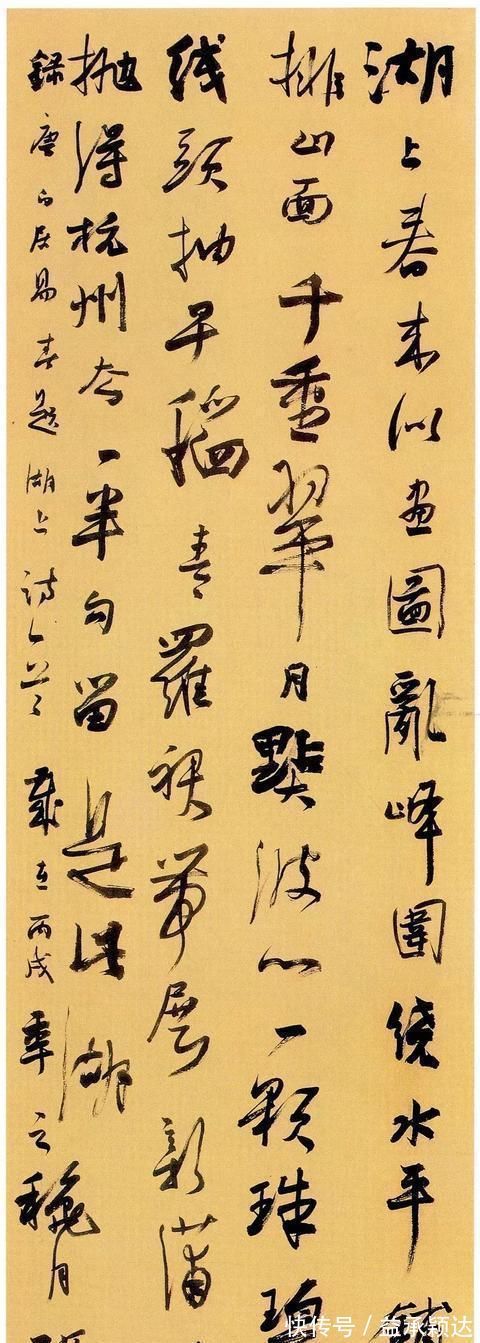 湖上春来似画圖亂峰圍绕水平
排山面千重翠月點波心一顆珠碧
线頭抽早稻青羅裙帶展新蒲
抛得杭州去一半勾留是此湖
錄唐白居易春题湖上诗一首 歲在丙戌年之秋月
快传号 / 益承颖达